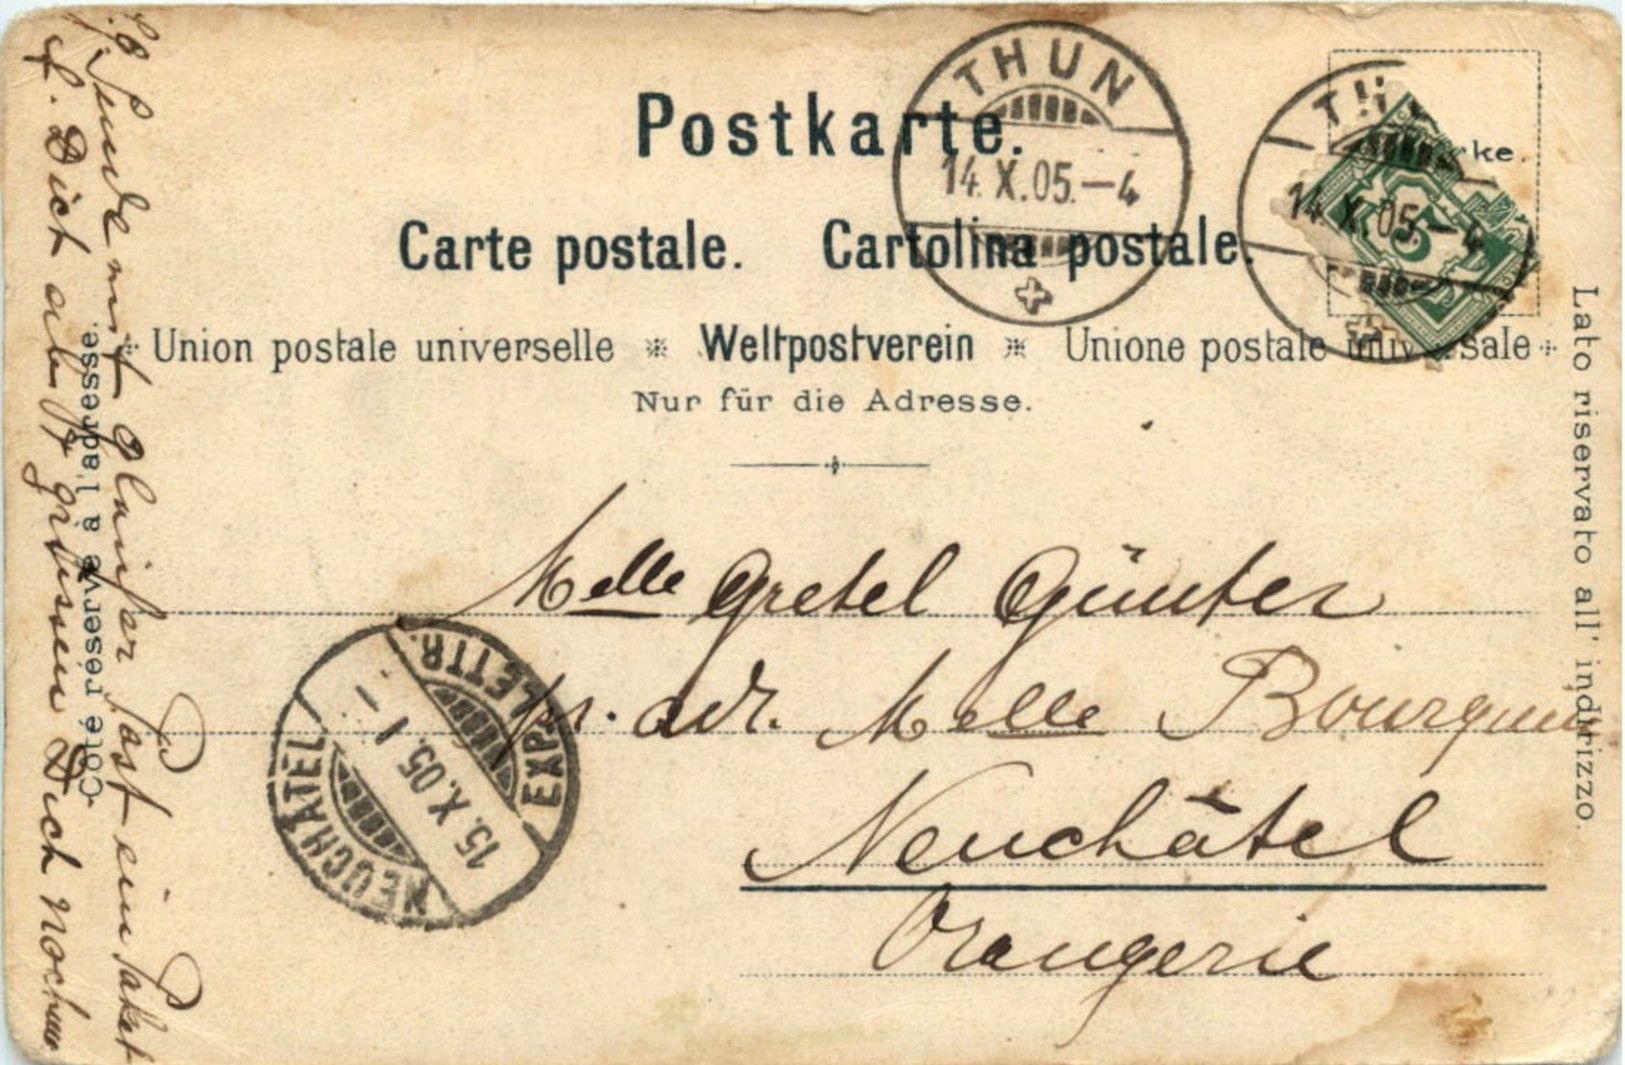 Postkarte.
Carte postale. Cartolina postale.
Union postale universelle ※ Weltpostverein ※ Unione postale universale
Nur für die Adresse.
THUN
14.X.05.-4
14.X.05.-4
5
rke.
Melle Gretel Günter
pr. adr. Melle Bourquin
Neuchâtel
Orangerie
NEUCHATEL
15.X.05.1-
EXP. LETTR.
Côté réservé à l'adresse.
Lato riservato all' indirizzo.
Sende mit gleicher Post ein Paket
f. Dich ab. grüssen Dich noch